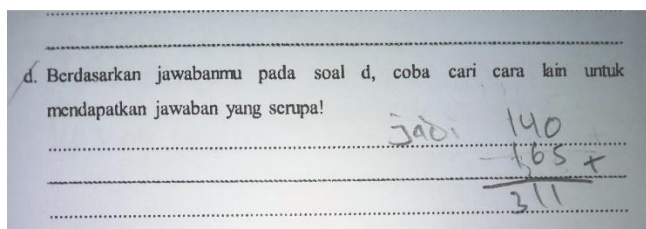 d. Berdasarkan jawabanmu pada soal d, coba cari cara lain untuk
mendapatkan jawaban yang serupa!
jadi 140
165 +
311